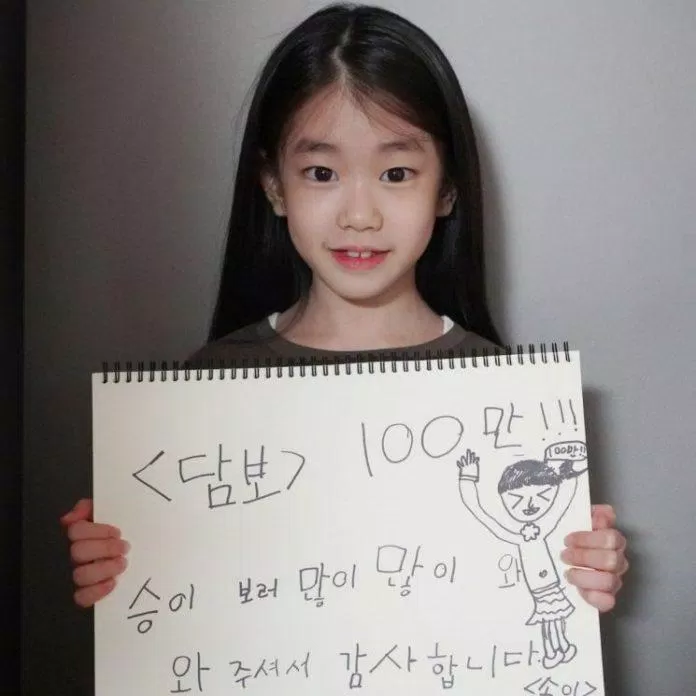 <담보> 100만!!!
100만!!
승이 보러 많이 많이 와
와 주셔서 감사합니다.
<승이>